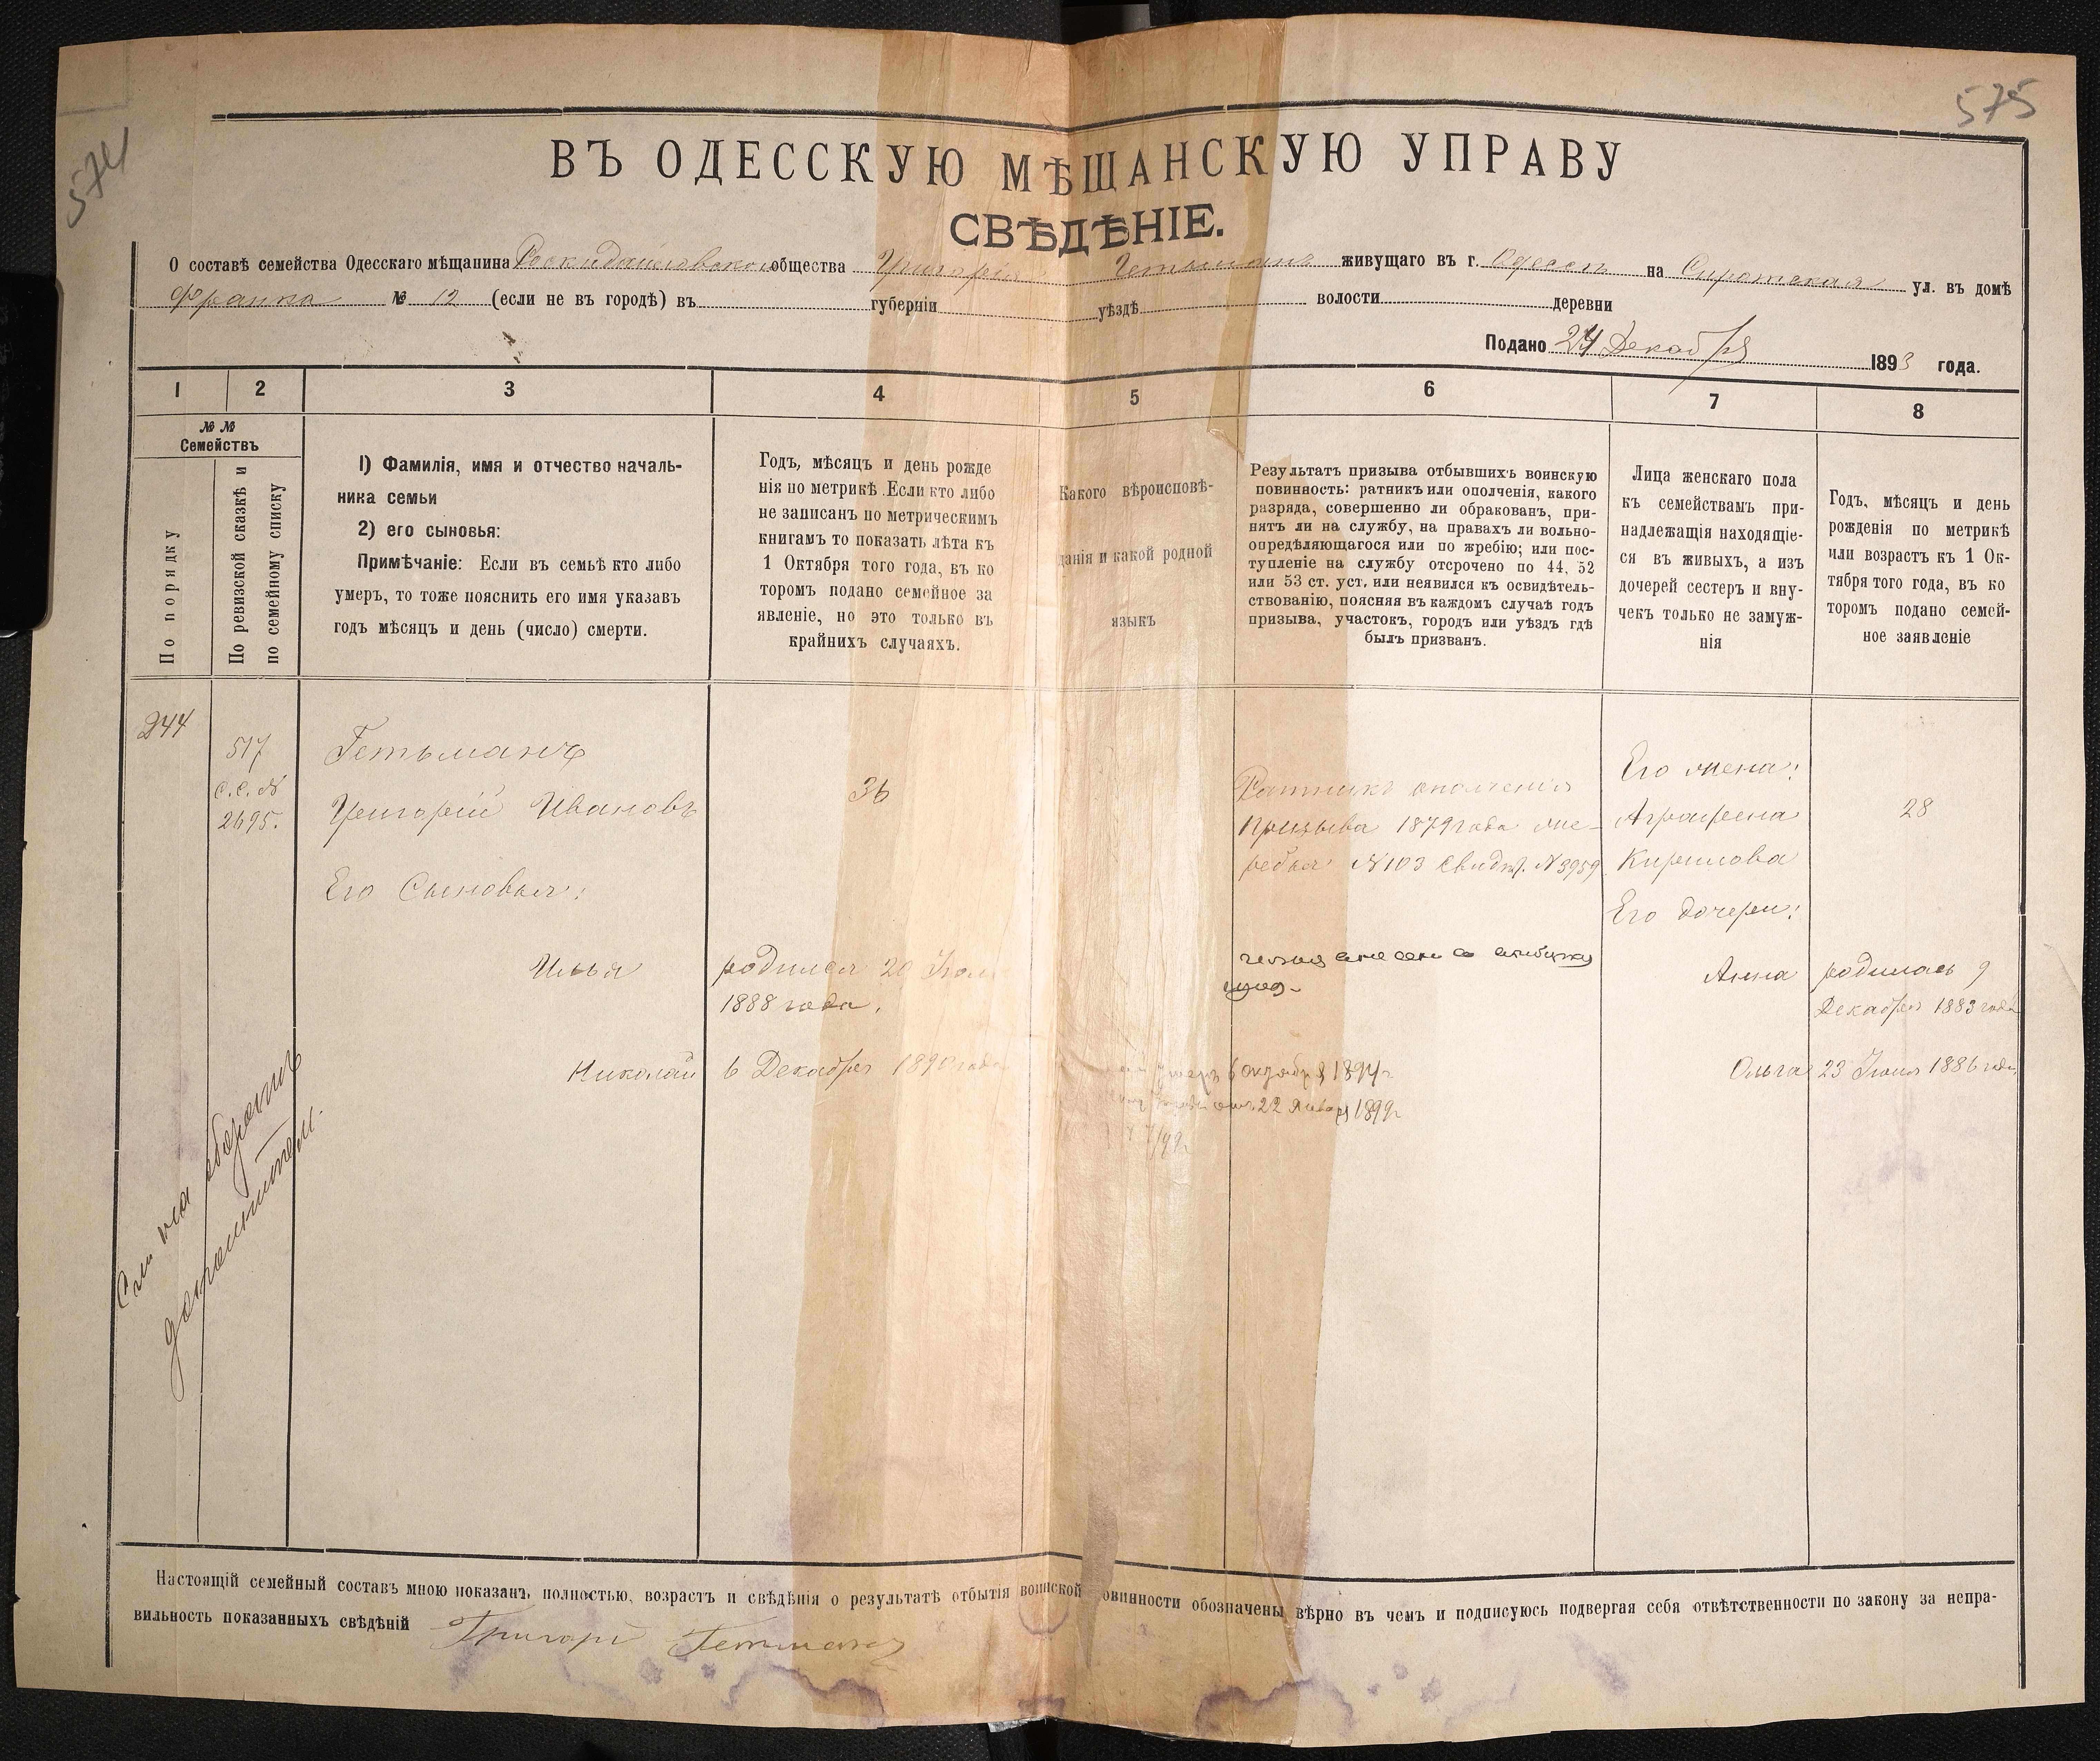 574
575
ВЪ ОДЕССКУЮ МѢЩАНСКУЮ УПРАВУ
СВѢДѢНІЕ.
О составѣ семейства Одесскаго мѣщанина общества Григорія Гетьманъ живущаго въ г. Одессѣ на Сиротская ул. въ домѣ
Франка № 12 (если не въ городѣ) въ губерніи уѣздѣ волости деревни
Подано 24 Декабря 1893 года.
1 2 3 4 5 6 7 8
№ №
Семействъ
По порядку
По ревизской сказкѣ и
по семейному списку
1) Фамилія, имя и отчество началь-
ника семьи
2) его сыновья:
Примѣчаніе: Если въ семьѣ кто либо
умеръ, то тоже пояснить его имя указавъ
годъ мѣсяцъ и день (число) смерти.
Годъ, мѣсяцъ и день рожде
нія по метрикѣ. Если кто либо
не записанъ по метрическимъ
книгамъ то показать лѣта къ
1 Октября того года, въ ко
торомъ подано семейное за
явленіе, но это только въ
крайнихъ случаяхъ.
Какого вѣроисповѣ-
данія и какой родной
языкъ
Результатъ призыва отбывшихъ воинскую
повинность: ратникъ или ополченія, какого
разряда, совершенно ли обракованъ, при-
нятъ ли на службу, на правахъ ли вольно-
опредѣляющагося или по жребію; или пос-
тупленіе на службу отсрочено по 44, 52
или 53 ст. уст. или неявился къ освидѣтель-
ствованію, поясняя въ каждомъ случаѣ годъ
призыва, участокъ, городъ или уѣздъ гдѣ
былъ призванъ.
Лица женскаго пола
къ семействамъ при-
надлежащія находящіе-
ся въ живыхъ, а изъ
дочерей сестеръ и вну-
чекъ только не замуж-
нія
Годъ, мѣсяцъ и день
рожденія по метрикѣ
или возрастъ къ 1 Ок-
тября того года, въ ко
торомъ подано семей-
ное заявленіе
244
517
С.С. №
2695.
Гетьманъ
Григорій Ивановъ
36
Ратникъ ополченія
призыва 1879 года жре-
бья №103 Свидѣт. №3959
Его жена:
Аграфена
Кирилова
28
Его Сыновья:
Его дочери:
Илья
родился 20 Іюля
1888 года.
Анна
родилась 9
Декабря 1883 года
Николай
6 Декабря 1890 года
умеръ 6 октября 1894г
22 Января 1899г
Ольга
23 Іюня 1886 года
См на оборотѣ
дополнител.
Настоящій семейный составъ мною показанъ полностью, возрастъ и свѣдѣнія о результатѣ отбытія воинской овинности обозначены вѣрно въ чемъ и подписуюсь подвергая себя отвѣтственности по закону за непра-
вильность показанныхъ свѣдѣній Григорі Гетманъ